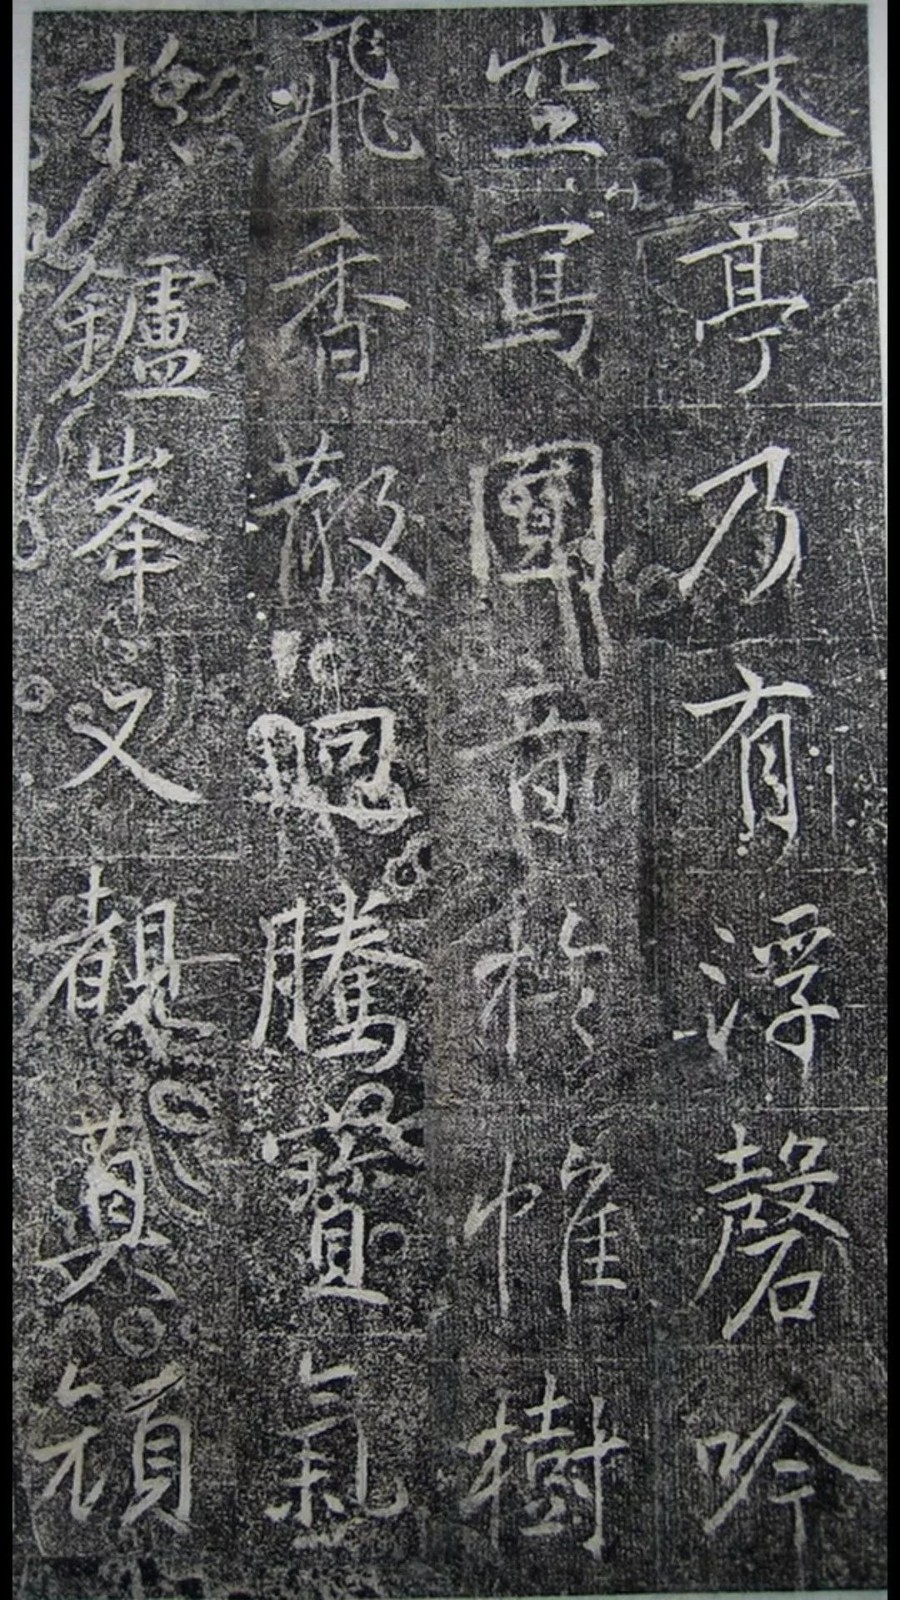 林亭乃有浮磬吟
空寫圓音於帷樹
飛香散迴騰寶氣
於鑪峯又覩真